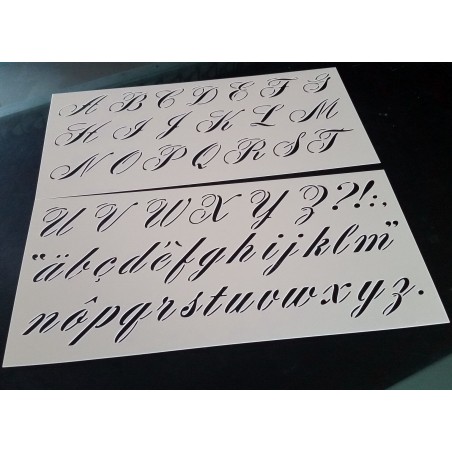 A B C D E F G
H I J K L M
N O P Q R S T
U V W X Y Z ? ! : ,
"äbçdèfghijklm"
nôpqrstuvwxyz.